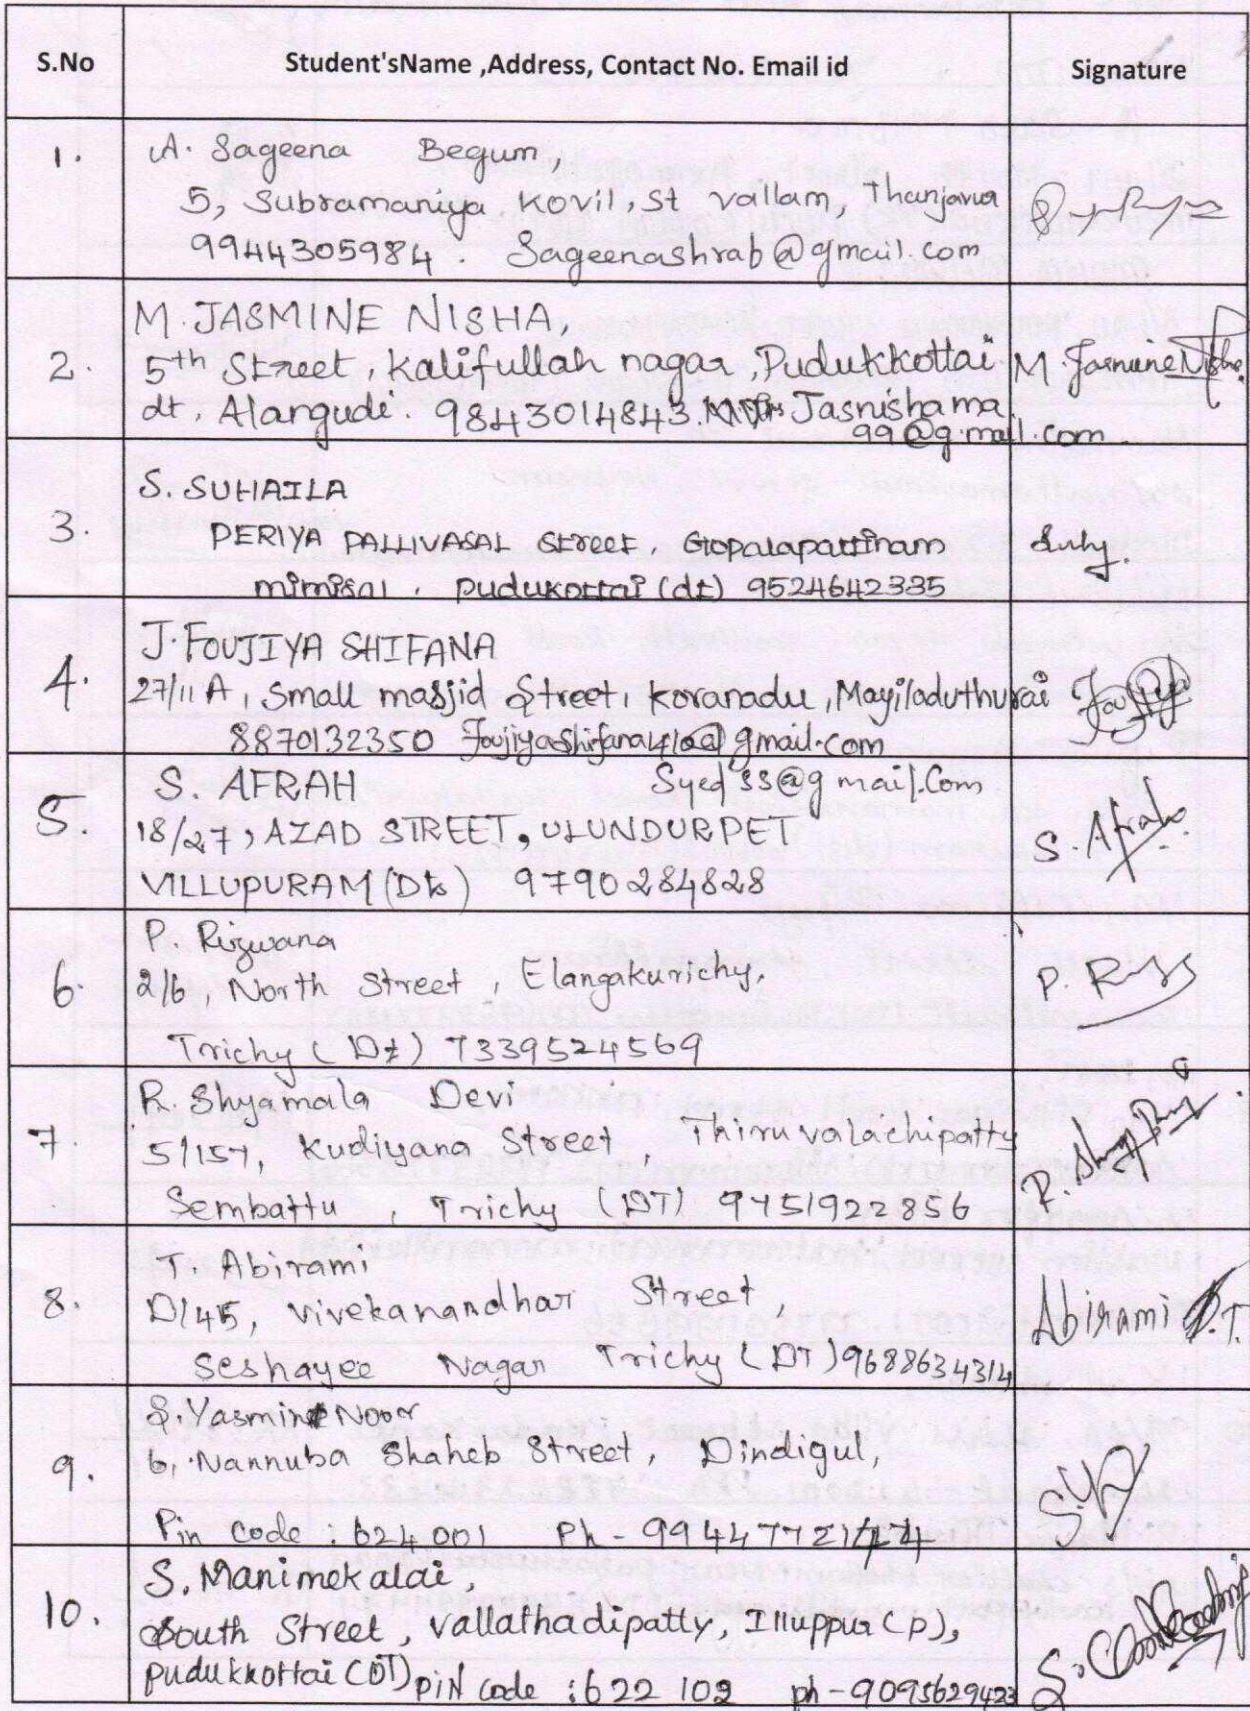 S.No Student'sName ,Address, Contact No. Email id Signature
1. A. Sageena Begum,
5, Subramaniya Kovil, St vallam, Thanjavur
9944305984. Sageenashrab@gmail.com
M. JASMINE NISHA,
2. 5th Street, Kalifullah nagar, Pudukkottai M. Jasmine Nisha
dt, Alangudi. 9843014843. Jasnishama
99@gmail.com
S. SUHAILA
3. PERIYA PALLIVASAL Street, Gopalapattinam
mimisal, pudukottai (dt) 9524642335
J. FOUJIYA SHIFANA
4. 27/11 A, Small masjid Street, Koranadu, Mayiladuthurai
8870132350 Foujiyashifana410@gmail.com
S. AFRAH Syed ss@gmail.com
5. 18/27, AZAD STREET, ULUNDURPET S. Afrah
VILLUPURAM (Dt) 9790284828
P. Rizwana
6. 2/6, North Street, Elangakurichy, P. Riz
Trichy (Dt) 7339524569
R. Shyamala Devi
7. 51157, Kudiyana Street, Thiruvalachipatty
Sembattu, Trichy (DT) 9751922856
T. Abirami
8. D/45, vivekanandhar Street, Abirami .T.
Seshayee Nagar Trichy (DT) 9688634314
S. Yasmine Noor
9. 6, Nannuba Shaheb Street, Dindigul,
Pin Code : 624 001 Ph - 9944772144
S. Manimekalai,
10. South Street, vallathadipatty, Illuppur (p),
pudukkottai (DT) PIN code : 622 102 ph - 9095629423